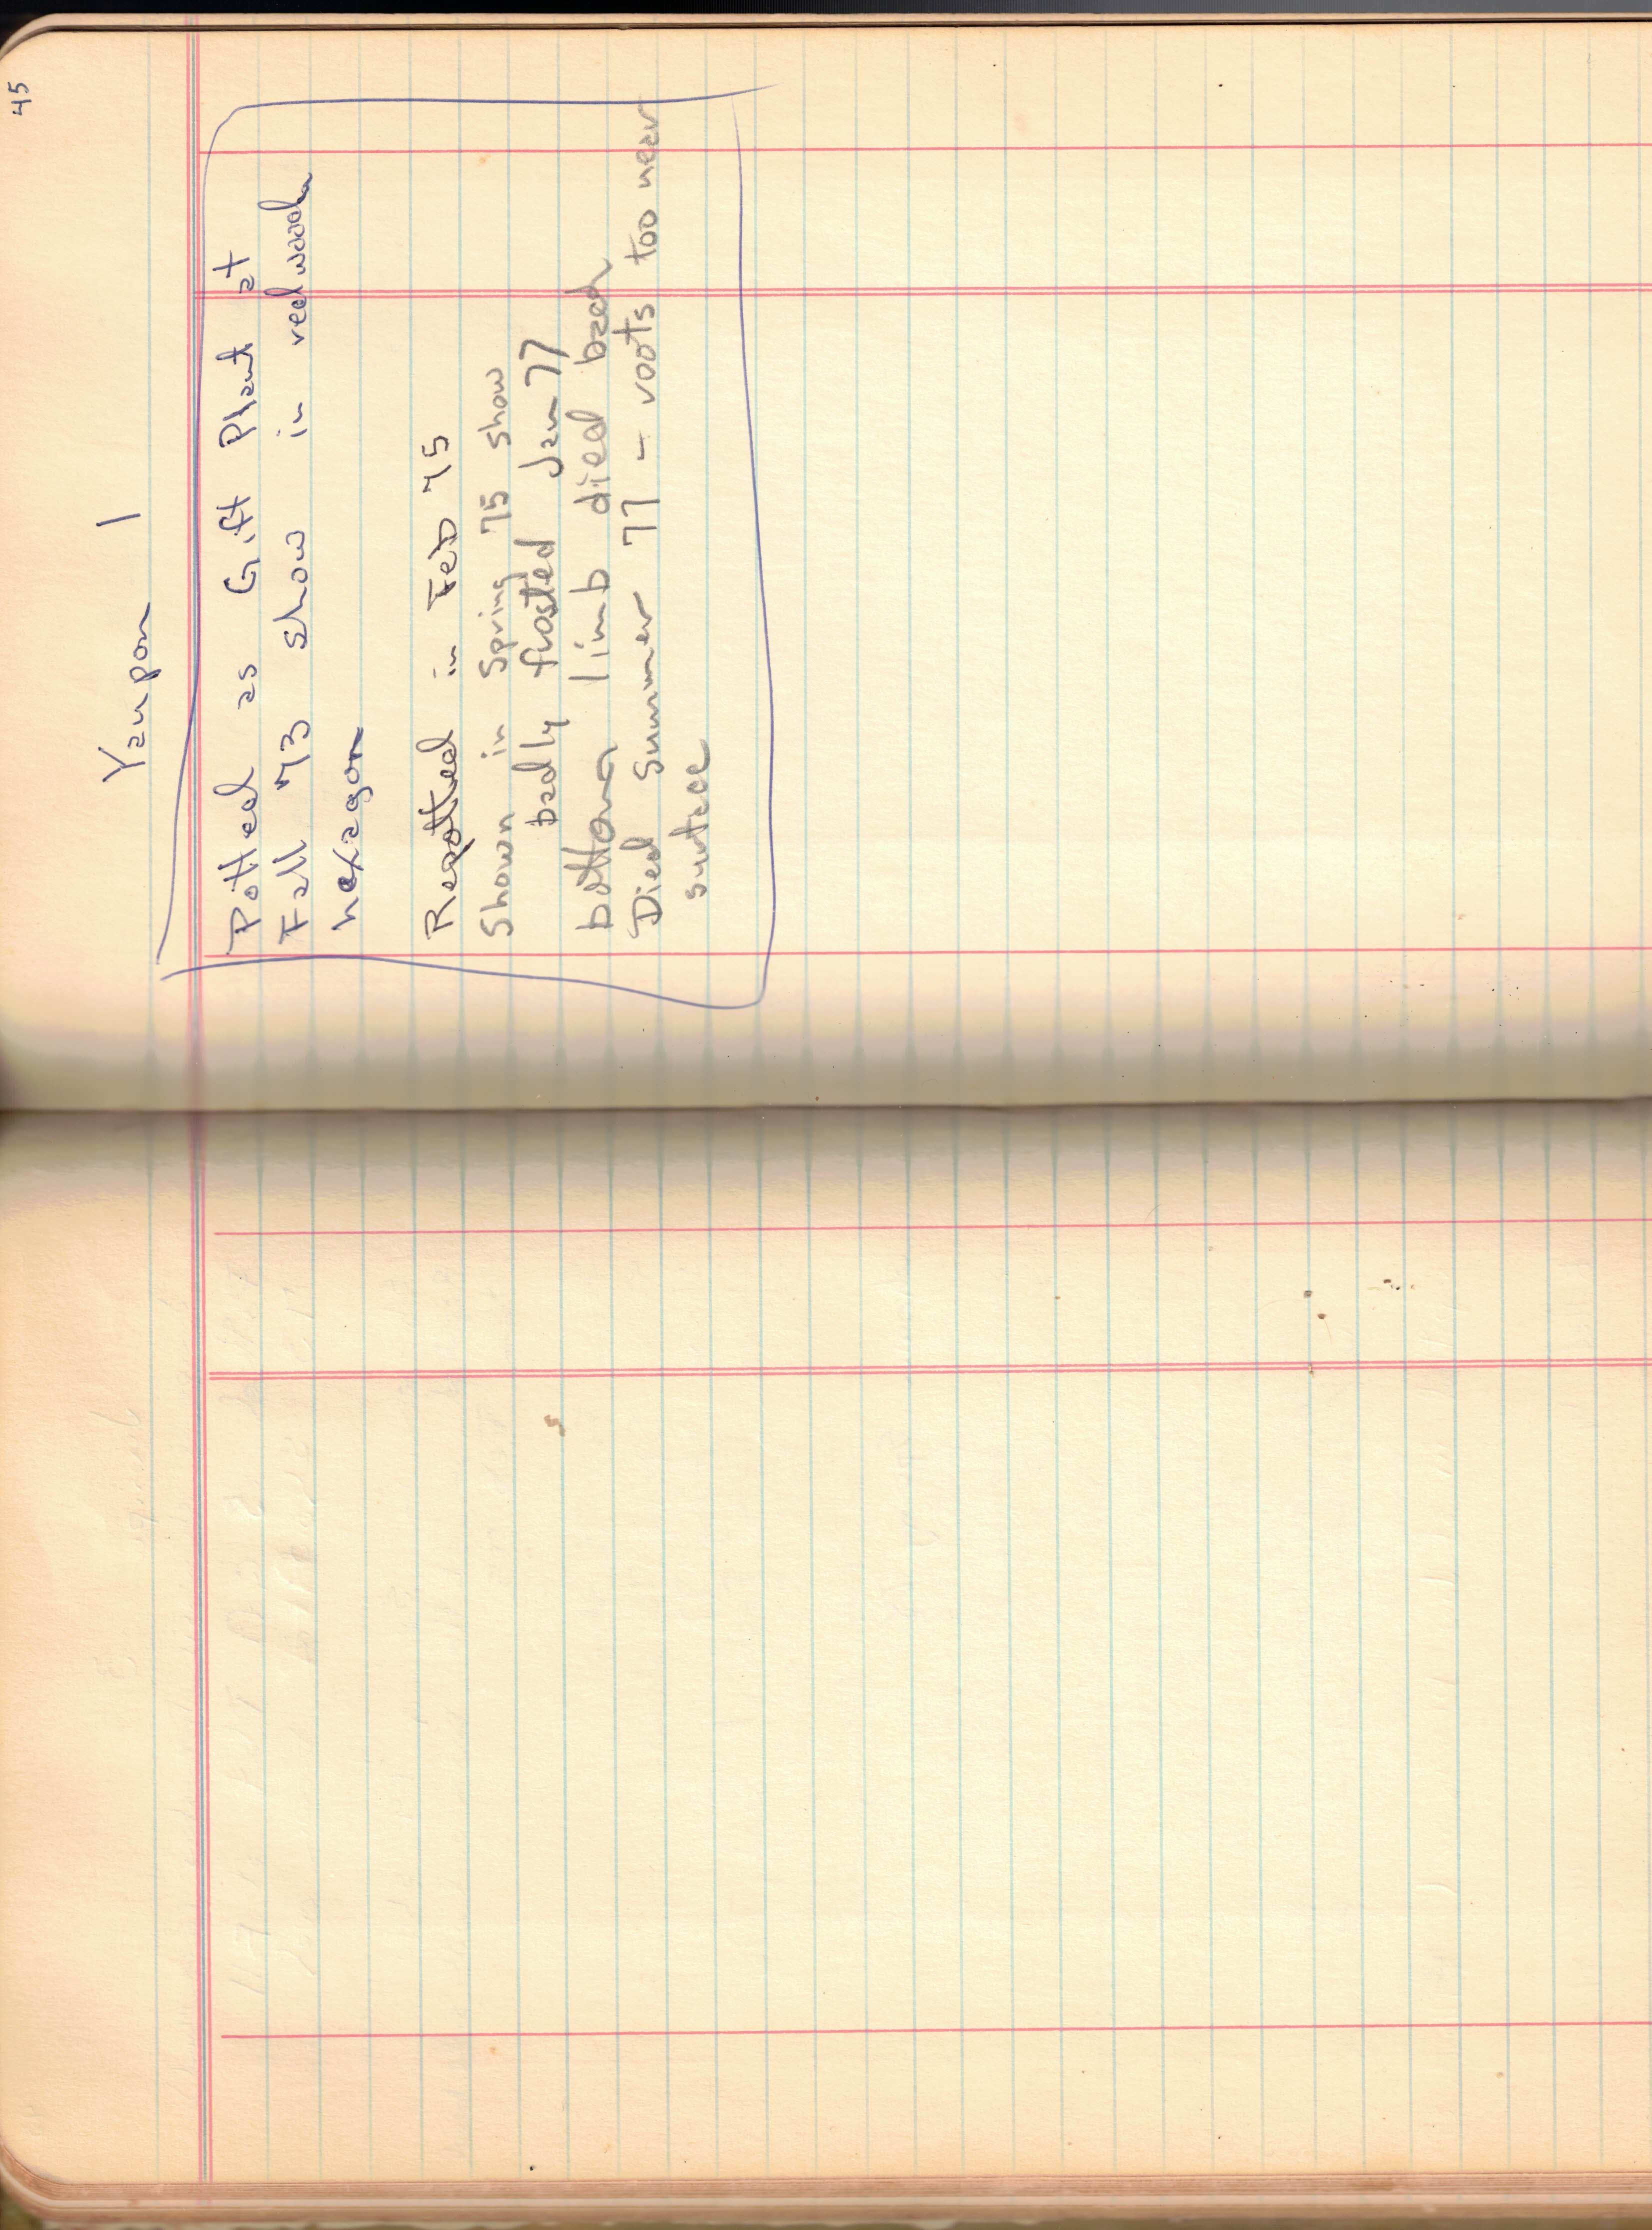 45
Yaupon 1
Potted as Gift Plant at
Fall 73 show in redwood
hexagon
Repotted in Feb 75
Shown in Spring 75 show
badly frosted Jan 77
bottom limb died back
Died Summer 77 - roots too near
surface